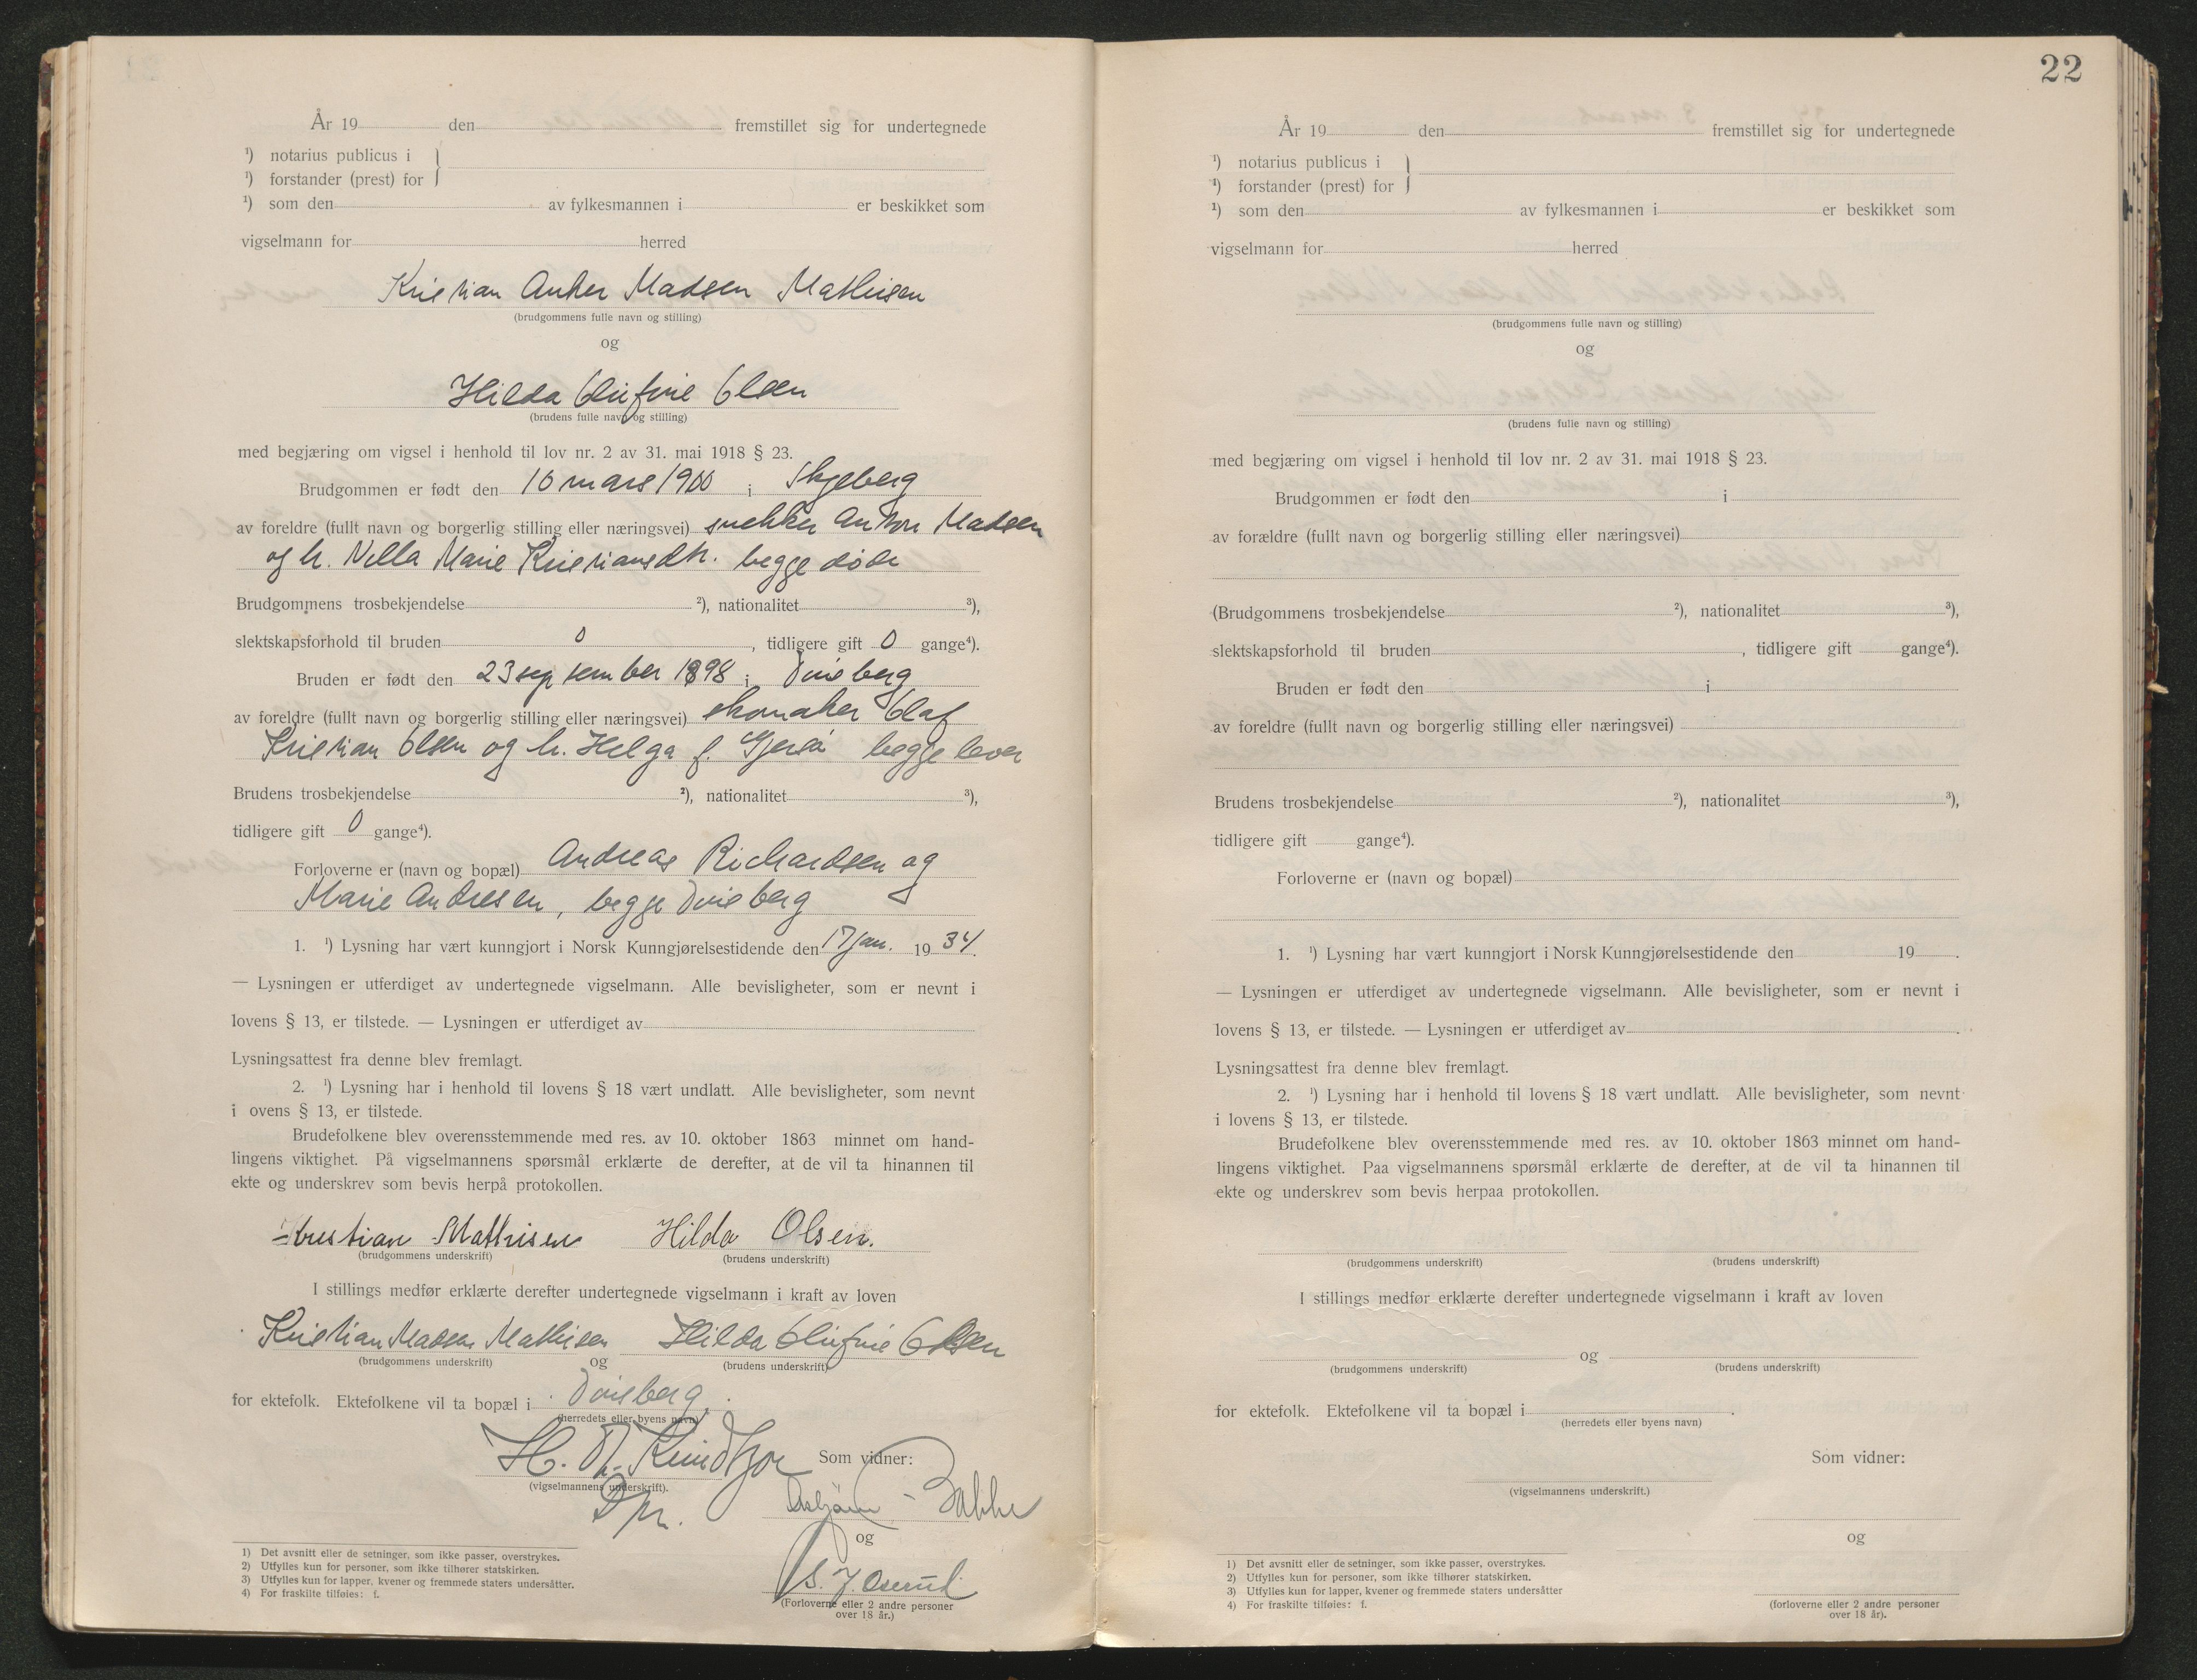 År 19 den fremstillet sig for undertegnede
¹) notarius publicus i
¹) forstander (prest) for
¹) som den av fylkesmannen i er beskikket som
vigselmann for herred
Kristian Anker Madsen Mathisen
(brudgommens fulle navn og stilling)
og
Hilda Olufine Olsen
(brudens fulle navn og stilling)
med begjæring om vigsel i henhold til lov nr. 2 av 31. mai 1918 § 23.
Brudgommen er født den 10 mars 1900 i Skjeberg
av foreldre (fullt navn og borgerlig stilling eller næringsvei) snekker Anton Madsen
og h. Nella Marie Kristiansdtr. begge døde
Brudgommens trosbekjendelse ²), nationalitet ³),
slektskapsforhold til bruden 0, tidligere gift 0 gange⁴).
Bruden er født den 23 september 1898 i Tune
av foreldre (fullt navn og borgerlig stilling eller næringsvei) skomaker Olaf
Kristian Olsen og h. Helga f. begge lever
Brudens trosbekjendelse ²), nationalitet ³),
tidligere gift 0 gange⁴).
Forloverne er (navn og bopæl) Andreas Richardsen og
Marie Andresen, begge
1. ¹) Lysning har vært kunngjort i Norsk Kunngjørelsestidende den 17 jan. 1934.
— Lysningen er utferdiget av undertegnede vigselmann. Alle bevisligheter, som er nevnt i
lovens § 13, er tilstede. — Lysningen er utferdiget av
Lysningsattest fra denne blev fremlagt.
2. ¹) Lysning har i henhold til lovens § 18 vært undlatt. Alle bevisligheter, som nevnt
i ovens § 13, er tilstede.
Brudefolkene blev overensstemmende med res. av 10. oktober 1863 minnet om hand-
lingens viktighet. På vigselmannens spørsmål erklærte de derefter, at de vil ta hinannen til
ekte og underskrev som bevis herpå protokollen.
Kristian Mathisen Hilda Olsen.
(brudgommens underskrift) (brudens underskrift)
I stillings medfør erklærte derefter undertegnede vigselmann i kraft av loven
Kristian Madsen Mathisen Hilda Olufine Olsen
(brudgommens underskrift) og (brudens underskrift)
for ektefolk. Ektefolkene vil ta bopæl i
(herredets eller byens navn)
Som vidner:
(vigselmannens underskrift).
og
(Forloverne eller 2 andre personer
over 18 år.)
1) Det avsnitt eller de setninger, som ikke passer, overstrykes.
2) Utfylles kun for personer, som ikke tilhører statskirken.
3) Utfylles kun for lapper, kvener og fremmede staters undersåtter.
4) For fraskilte tilføies: f.
22
År 19 den fremstillet sig for undertegnede
¹) notarius publicus i
¹) forstander (prest) for
¹) som den av fylkesmannen i er beskikket som
vigselmann for herred
(brudgommens fulle navn og stilling)
og
(brudens fulle navn og stilling)
med begjæring om vigsel i henhold til lov nr. 2 av 31. mai 1918 § 23.
Brudgommen er født den i
av forældre (fullt navn og borgerlig stilling eller næringsvei)
(Brudgommens trosbekjendelse ²), nationalitet ³),
slektskapsforhold til bruden , tidligere gift gange⁴).
Bruden er født den i
av foreldre (fullt navn og borgerlig stilling eller næringsvei)
Brudens trosbekjendelse ²), nationalitet ³),
tidligere gift gange⁴).
Forloverne er (navn og bopæl)
1. ¹) Lysning har vært kunngjort i Norsk Kunngjørelsestidende den 19 .
— Lysningen er utferdiget av undertegnede vigselmann. Alle bevisligheter, som er nevnt i
lovens § 13, er tilstede. — Lysningen er utferdiget av .
Lysningsattest fra denne blev fremlagt.
2. ¹) Lysning har i henhold til lovens § 18 vært undlatt. Alle bevisligheter, som nevnt
i lovens § 13, er tilstede.
Brudefolkene blev overensstemmende med res. av 10. oktober 1863 minnet om hand-
lingens viktighet. Paa vigselmannens spørsmål erklærte de derefter, at de vil ta hinannen til
ekte og underskrev som bevis herpaa protokollen.
(brudgommens underskrift) (brudens underskrift)
I stillings medfør erklærte derefter undertegnede vigselmann i kraft av loven
og
(brudgommens underskrift) (brudens underskrift)
for ektefolk. Ektefolkene vil ta bopæl i .
(herredets eller byens navn)
Som vidner:
(vigselmannens underskrift.)
og
(forloverne eller 2 andre personer
over 18 år).
1) Det avsnitt eller de setninger, som ikke passer, overstrykes.
2) Utfylles kun for personer, som ikke tilhører statskirken.
3) Utfylles kun for lapper, kvener og fremmede staters undersåtter
4) For fraskilte tilføies: f.